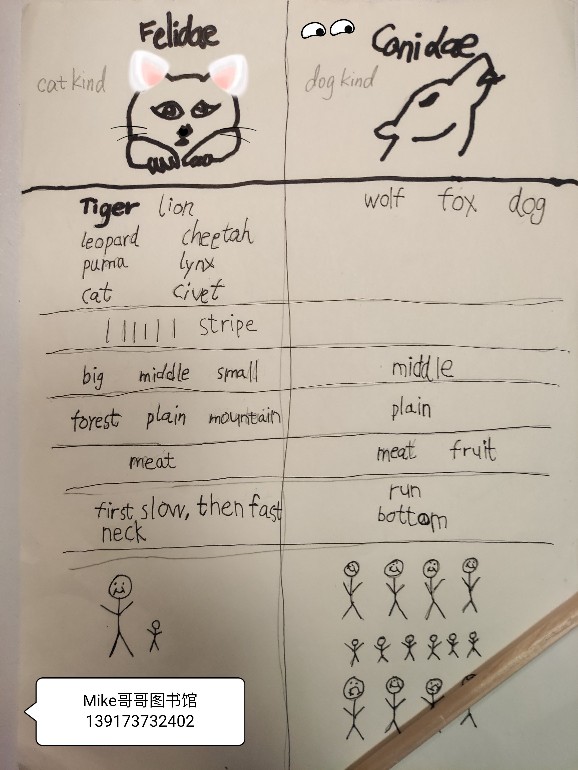 Felidae
Canidae
cat kind
dog kind
Tiger lion
leopard cheetah
puma lynx
cat civet
wolf fox dog
stripe
big middle small
middle
forest plain mountain
plain
meat
meat fruit
first slow, then fast
neck
run
bottom
Mike哥哥图书馆
139173732402